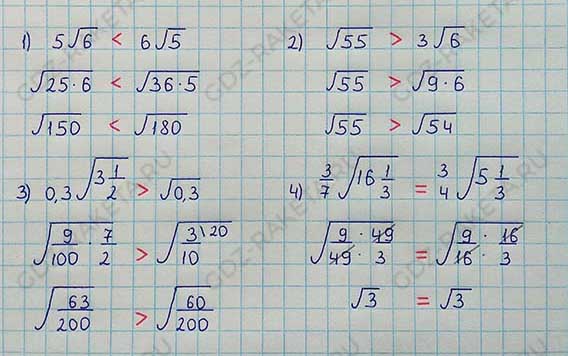 1) 5√6 < 6√5
√25·6 < √36·5
√150 < √180
2) √55 > 3√6
√55 > √9·6
√55 > √54
3) 0,3√3 1/2 > √0,3
√9/100 · 7/2 > √3\20/10
√63/200 > √60/200
4) 3/7 √16 1/3 = 3/4 √5 1/3
√9 · 49/49 · 3 = √9 · 16/16 · 3
√3 = √3
GDZ-RAKETA.RU